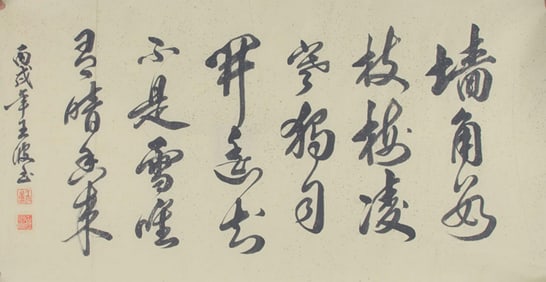 墙角数
枝梅凌
寒獨自
開遥知
不是雪唯
有暗香来
丙戌年王波书